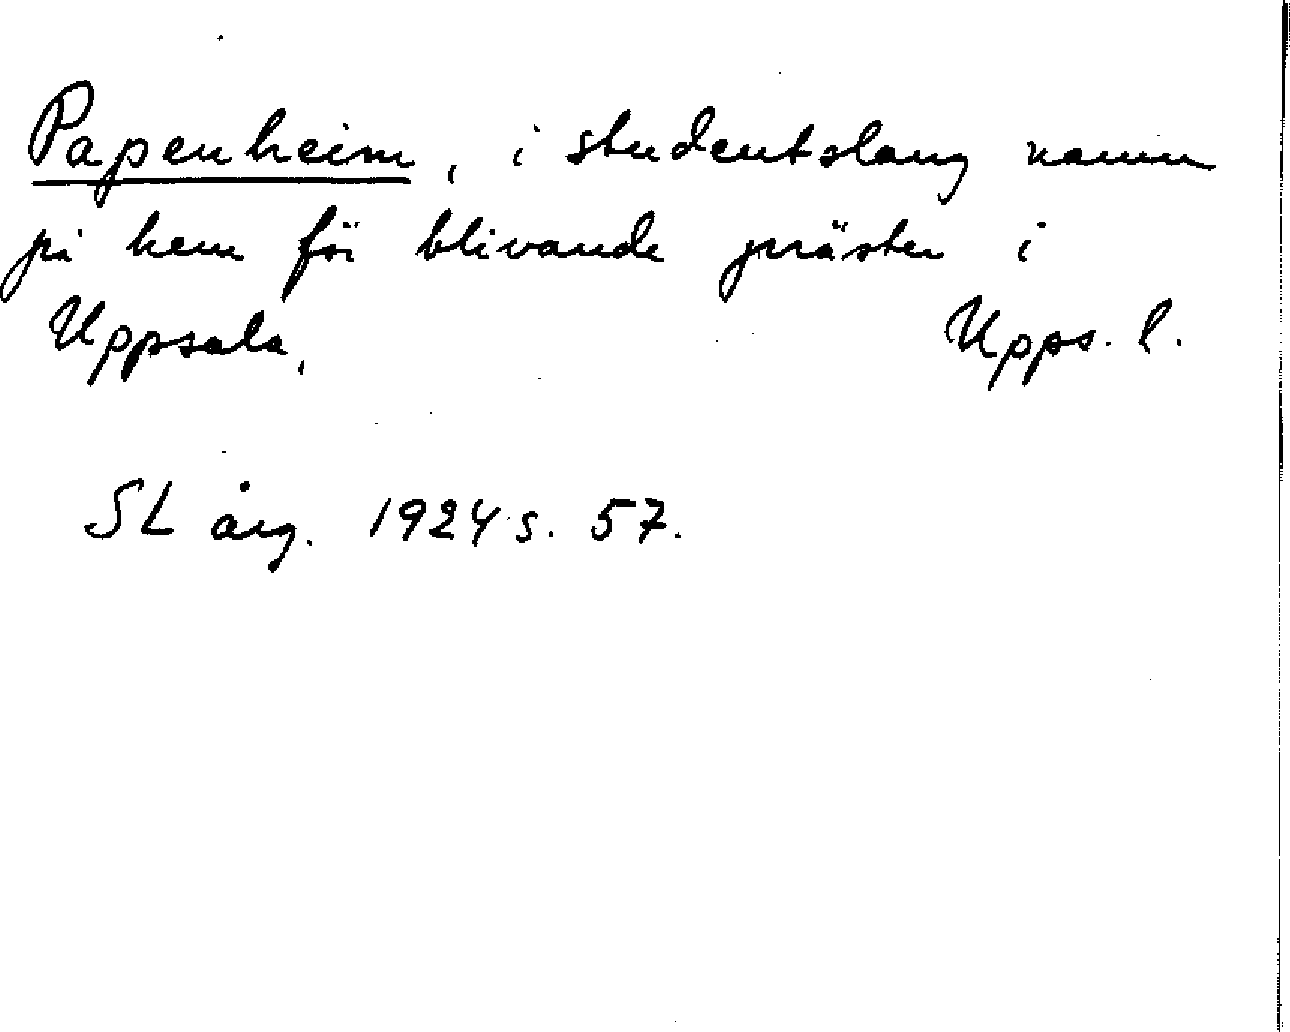 Papenheim, i studentslang namn
på hem för blivande präster i
Uppsala, Upps. l.
SL årg. 1924 s. 57.